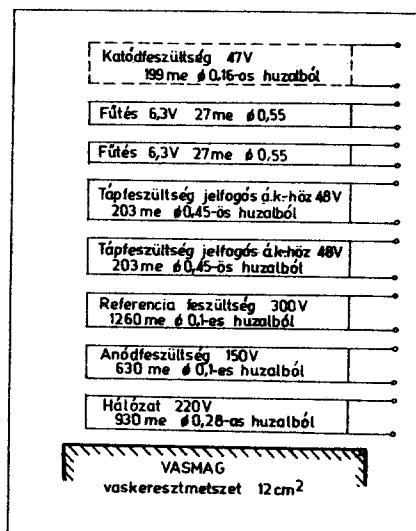 Katódfeszültség 47V
199 me ø 0,16-os huzalból
Fűtés 6,3V 27 me ø 0,55
Fűtés 6,3V 27 me ø 0,55
Tápfeszültség jelfogós á.k.-höz 48V
203 me ø 0,45-ös huzalból
Tápfeszültség jelfogós á.k-höz 48V
203 me ø 0,45-ös huzalból
Referencia feszültség 300V
1260 me ø 0,1-es huzalból
Anódfeszültség 150V
630 me ø 0,1-es huzalból
Hálózat 220V
930 me ø 0,28-as huzalból
VASMAG
vaskeresztmetszet 12cm²